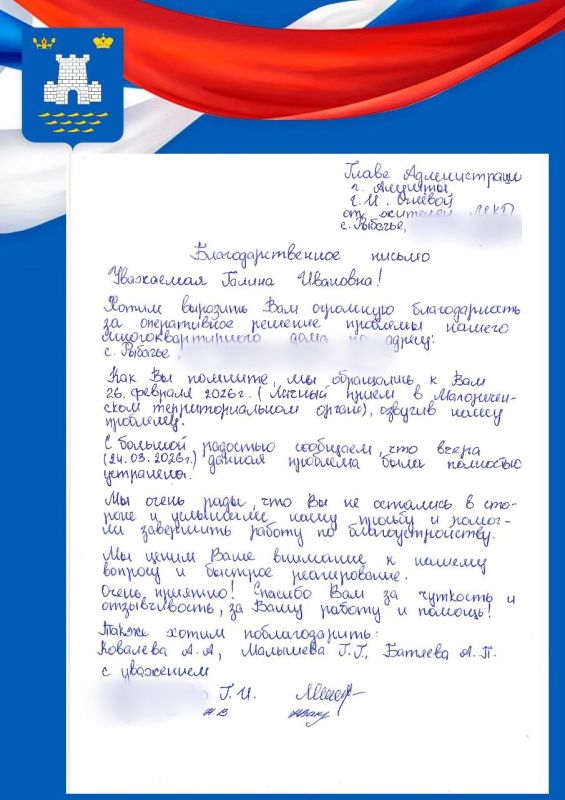 Главе Администрации
г. Алушты
Г.И. Огнёвой
от жителей МКД
с. Рыбачье,
Благодарственное письмо
Уважаемая Галина Ивановна!
Хотим выразить Вам огромную благодарность
за оперативное решение проблемы нашего
многоквартирного дома по адресу:
с. Рыбачье,
Как Вы помните, мы обращались к Вам
26. февраля 2026г. (Личный приём в Малоречен-
ском территориальном органе), озвучив нашу
проблему.
С большой радостью сообщаем, что вчера
(24.03.2026г.) данная проблема была полностью
устранена.
Мы очень рады, что Вы не остались в сто-
роне и услышали нашу просьбу и помог-
ли завершить работу по благоустройству.
Мы ценим Ваше внимание к нашему
вопросу и быстрое реагирование.
Очень приятно! Спасибо Вам за чуткость и
отзывчивость, за Вашу работу и помощь!
Также хотим поблагодарить:
Ковалева А.А, Малышева Г.Г., Батяева А.П.
с уважением
Г.И.
Н.В